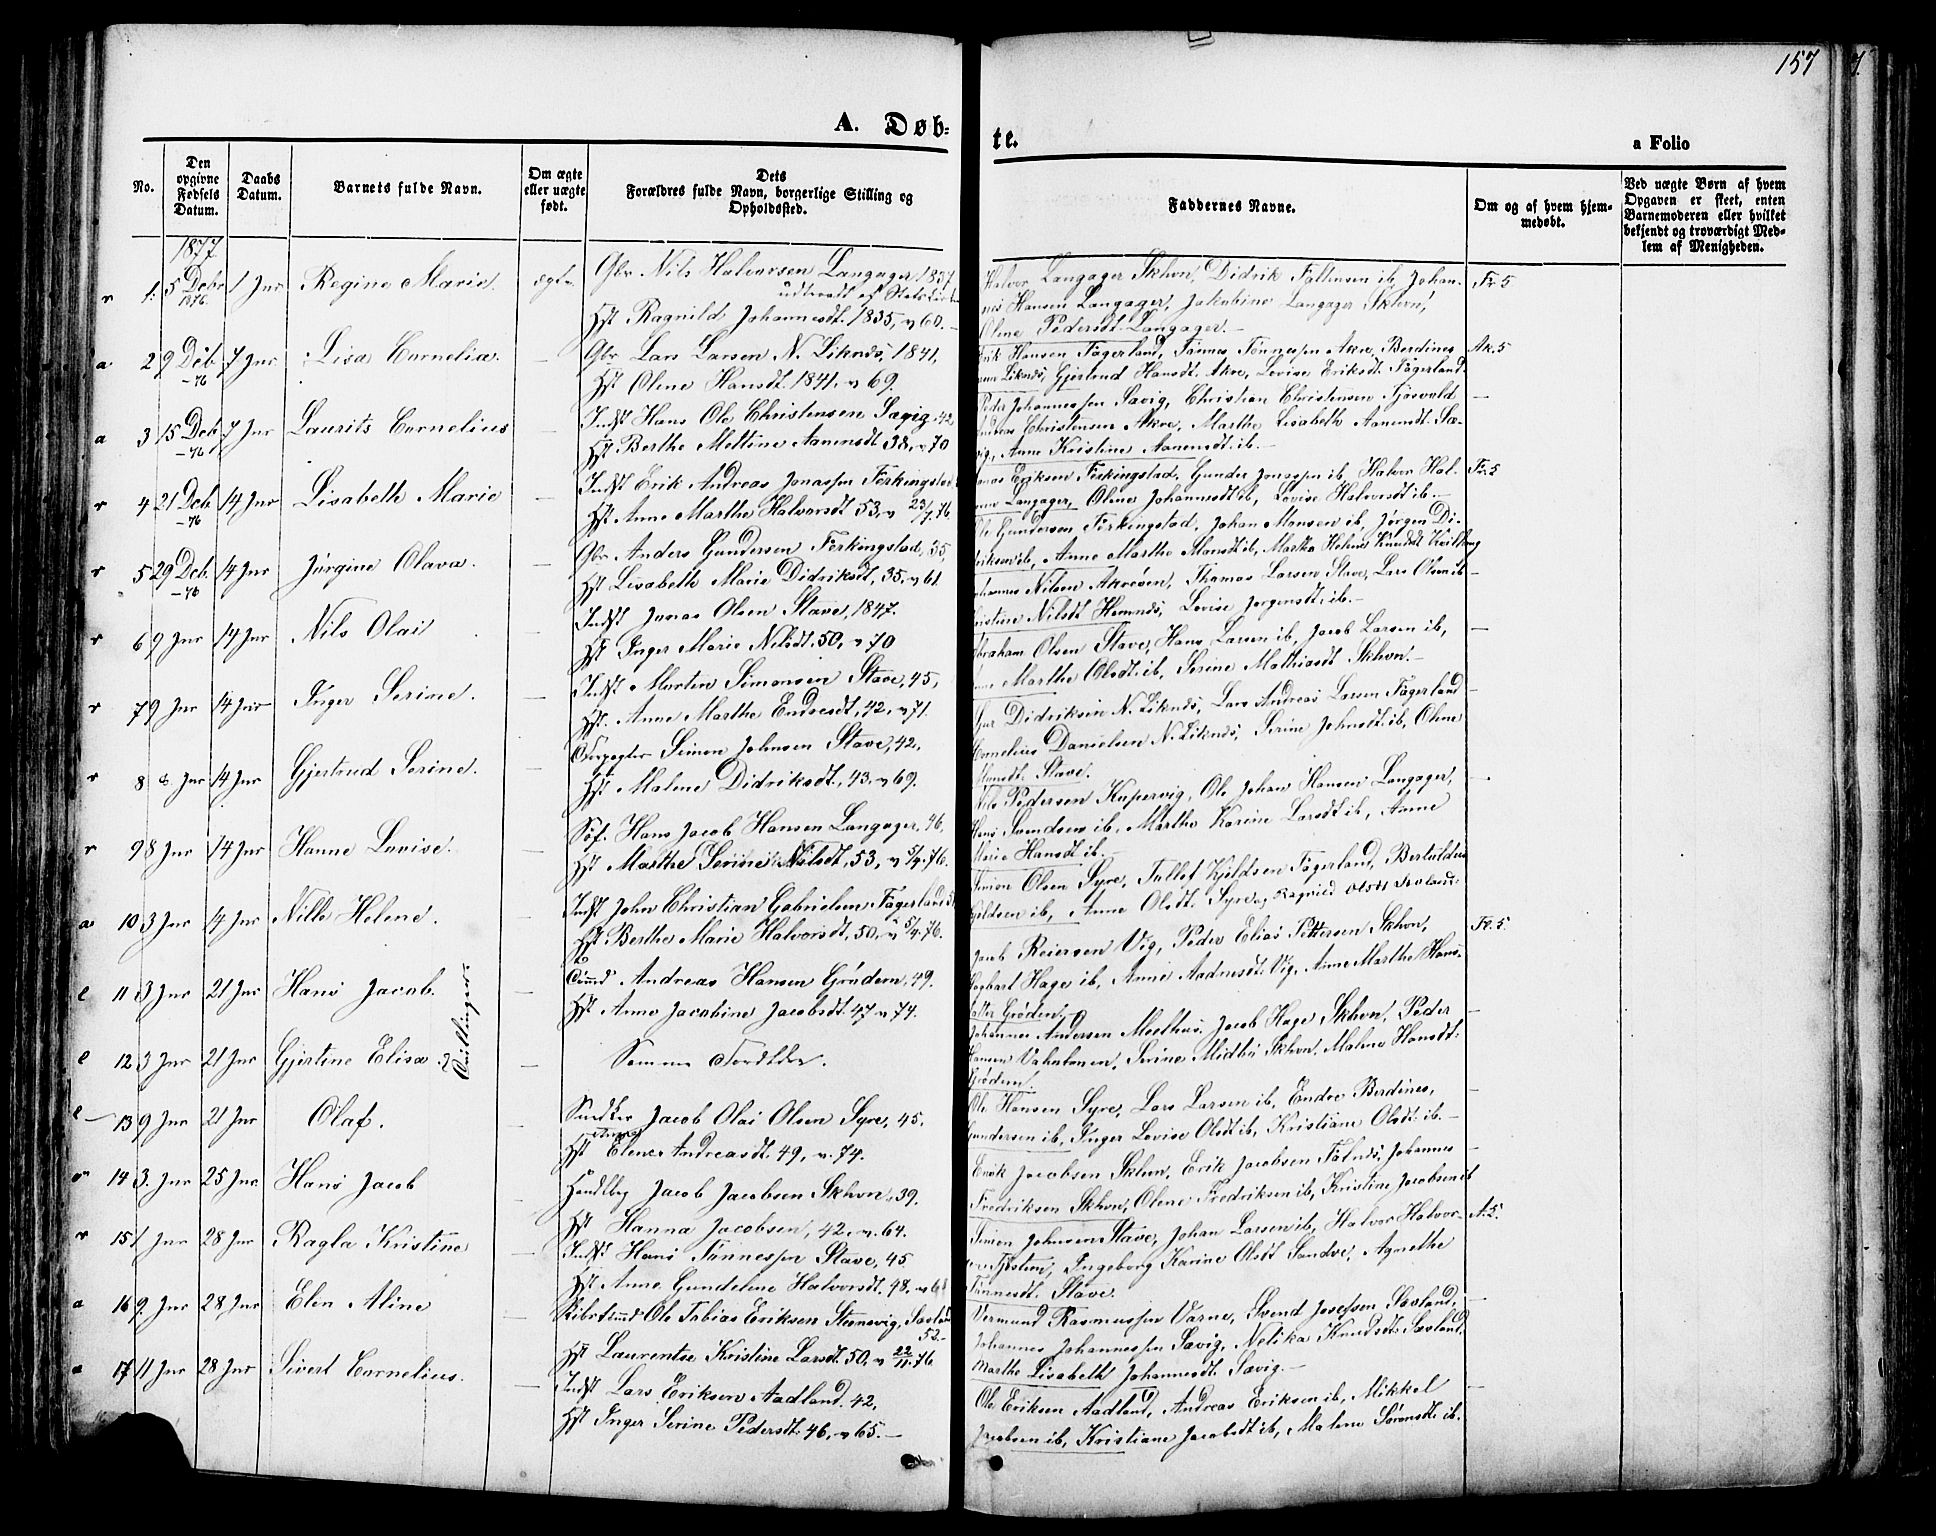 157
A. Døb-
te.
a Folio
No.
Den opgivne Fødsels Datum.
Daabs Datum.
Barnets fulde Navn.
Om ægte eller uægte født.
Dets Forældres fulde Navn, borgerlige Stilling og Opholdssted.
Faddernes Navne.
Om og af hvem hjemmedøbt.
Ved uægte Børn af hvem Opgaven er skeet, enten Barnemoderen eller hvilket bekjendt og troværdigt Medlem af Menigheden.
1877
r 1. 5 Debr 1876. 1 Jnr Regine Marie. ægte Gbr Nils Halvorsen Langager 1837
udtraadt af Stats
Hst Ragnild Johannesdt. 1835, v 60.
Halvor Langager Skhvn, Didrik Tallensen ib, Johan-
nes Hansen Langager, Jakobine Langager Skhvn,
Oline Pedersdt. Langager.
Fr. 5
a 2 9 Deb -76 7 Jnr Lisa Cornelia. — Gbr Lars Larsen N. Liknes, 1841,
Hst Oline Hansdt. 1841. v 69.
Erik Hansen Fagerland, Tønnes Tønnessen Akre, Berdines
Liknes, Gjertrud Hansdt. Akre, Lovise Eriksdt. Fagerland.
Ak. 5
a 3 15 Deb -76 7 Jnr Laurits Cornelius — Indst Hans Ole Christensen Sævig, 42
Hst Berthe Mettine Aanensdt 38, v 70
Peder Johannessen Sævig, Christian Christensen Sjøvold
Andreas Christensen Akre, Marthe Lisabeth Aanensdt. Sæ-
vig, Anne Kristine Aanensdt. ib.
—
r 4 21 Deb -76 14 Jnr Lisabeth Marie — Indst Erik Andreas Jonassen Ferkingstad
Hst Anne Marthe Halvorsdt 53, v 23/7. 76.
Jonas Eriksen Ferkingstad, Gunder Jonassen ib, Halvor Hal-
Langager, Oline Johannesdt ib, Lovise Halvorsdt ib.
Fr. 5
r 5 29 Deb. -76 14 Jnr Jørgine Olava. — Gbr Anders Gundersen Ferkingstad, 35,
Hst Lisabeth Marie Didriksdt, 35, v 61
Ole Gundersen Ferkingstad, Johan Monsen ib, Jørgen Di-
driksen ib, Anne Marthe Monsdt ib, Martha Helene Knudsdt
r 6 9 Jnr 14 Jnr Nils Olai — Indst Jonas Olsen Stave, 1847.
Hst Inger Marie Nilsdt, 50, v 70
Johannes Nilsen Akreøen, Thomas Larsen Stave, Lars Olsen ib
Kristine Nilsdt Hemnes, Lovise Jørgensdt. ib.
—
r 7 9 Jnr 14 Jnr Inger Serine. — Indst Morten Simonsen Stave, 45,
Hst. Anne Marthe Endresdt, 42, v 71.
Abraham Olsen Stave, Hans Larsen ib, Jacob Larsen ib,
Marthe Olsdt ib, Serine Mathiasdt Skhvn.
—
r 8 8 Jnr 14 Jnr Gjertrud Serine. — Forpagter Simon Johnsen Stave, 42.
Hst Malene Didriksdt, 43, v 69.
Didriksen N. Liknes, Lars Andreas Larsen Fagerland
Cornelius Danielsen N. Liknes, Serine Johnsdt ib, Oline
Stave.
—
r 9 8 Jnr 14 Jnr Hanne Lovise. — Søf. Hans Jacob Hansen Langager, 46,
Hst Marthe Serine Nilsdt, 53, v 5/4. 76.
Nils Pedersen Kupervig, Ole Johan Hansen Langager,
Hans Svendsen ib, Marthe Karine Larsdt ib, Anne
Marie Hansdt ib.
—
a 10 3 Jnr 14 Jnr Nille Helene. — Indst John Christian Gabrielsen Fagerland
Hst Berthe Marie Halvorsdt, 50, v 5/4. 76.
Simon Olsen Syre, Tallef Kjeldsen Fagerland, Bertuldus
Kjeldsen ib, Anne Olsdt. Syre, Ragnild Olsdt
e 11 3 Jnr 21 Jnr Hans Jacob. — Andreas Hansen Grødem, 49.
Hst Anne Jacobine Jacobsdt. 47 v 74.
Jacob Reiersen Vig, Peder Elias Pettersen Skhvn,
Hage ib, Anne Aadnesdt Vig, Anne Marthe Hans-
datter Grødem.
Fr. 5
Tvillinger
e 12 3 Jnr 21 Jnr Gjertine Elisa. — Samme Forældre.
Johannes Andersen Meelhus, Jacob Hage Skhvn, Peder
Hansen Serine Midbø Skhvn, Malene Hansdt.
Grødem.
—
e 13 9 Jnr 21 Jnr Olaf. — Snedker Jacob Olai Olsen Syre, 45.
Hst Elene Andreasdt. 49, v. 74.
Ole Hansen Syre, Lars Larsen ib, Endre Berdines,
Gundersen ib, Inger Lovise Olsdt ib, Kristiane Olsdt. ib.
—
r 14 3. Jnr 25 Jnr. Hans Jacob — Handlbg Jacob Jacobsen Skhvn, 39.
Hst Hanna Jacobsen, 42, v. 64.
Erik Jacobsen Skhvn, Erik Jacobsen Falnes, Johannes
Fredriksen Skhvn, Olene Fredriksen ib, Kristine Jacobsen ib
—
r 15 1 Jnr 28 Jnr Ragla Kristine — Indst Hans Tønnessen Stave, 45
Hst Anne Gundeline Halvorsdt. 48, v 68
Simon Johnsen Stave, Johan Larsen ib, Halvor Halvor-
sen Ingeborg Karine Olsdt Sandve, Agnethe
Tønnesdt. Stave.
A. 5.
a 16 9. Jnr 28 Jnr Elen Aline — Ole Tobias Eriksen Stensvig, Søvland
52.
Hst Laurentse Kristine Larsdt. 50, v 22/11. 76.
Vermund Rasmussen Varne, Svend Josefsen Søvland,
Johannes Johannessen Sævig, Nelika Knudsdt Søvland,
Marthe Lisabeth Johannesdt. Sævig.
—
a 17 11 Jnr 28 Jnr Sivert Cornelius. — Indst Lars Eriksen Aadland. 42,
Hst Inger Serine Pedersdt. 46, v 65.
Ole Eriksen Aadland, Andreas Eriksen ib, Mikkel
Jacobsen ib, Kristiane Jacobsdt ib, Malene Sørensdt. ib.
—